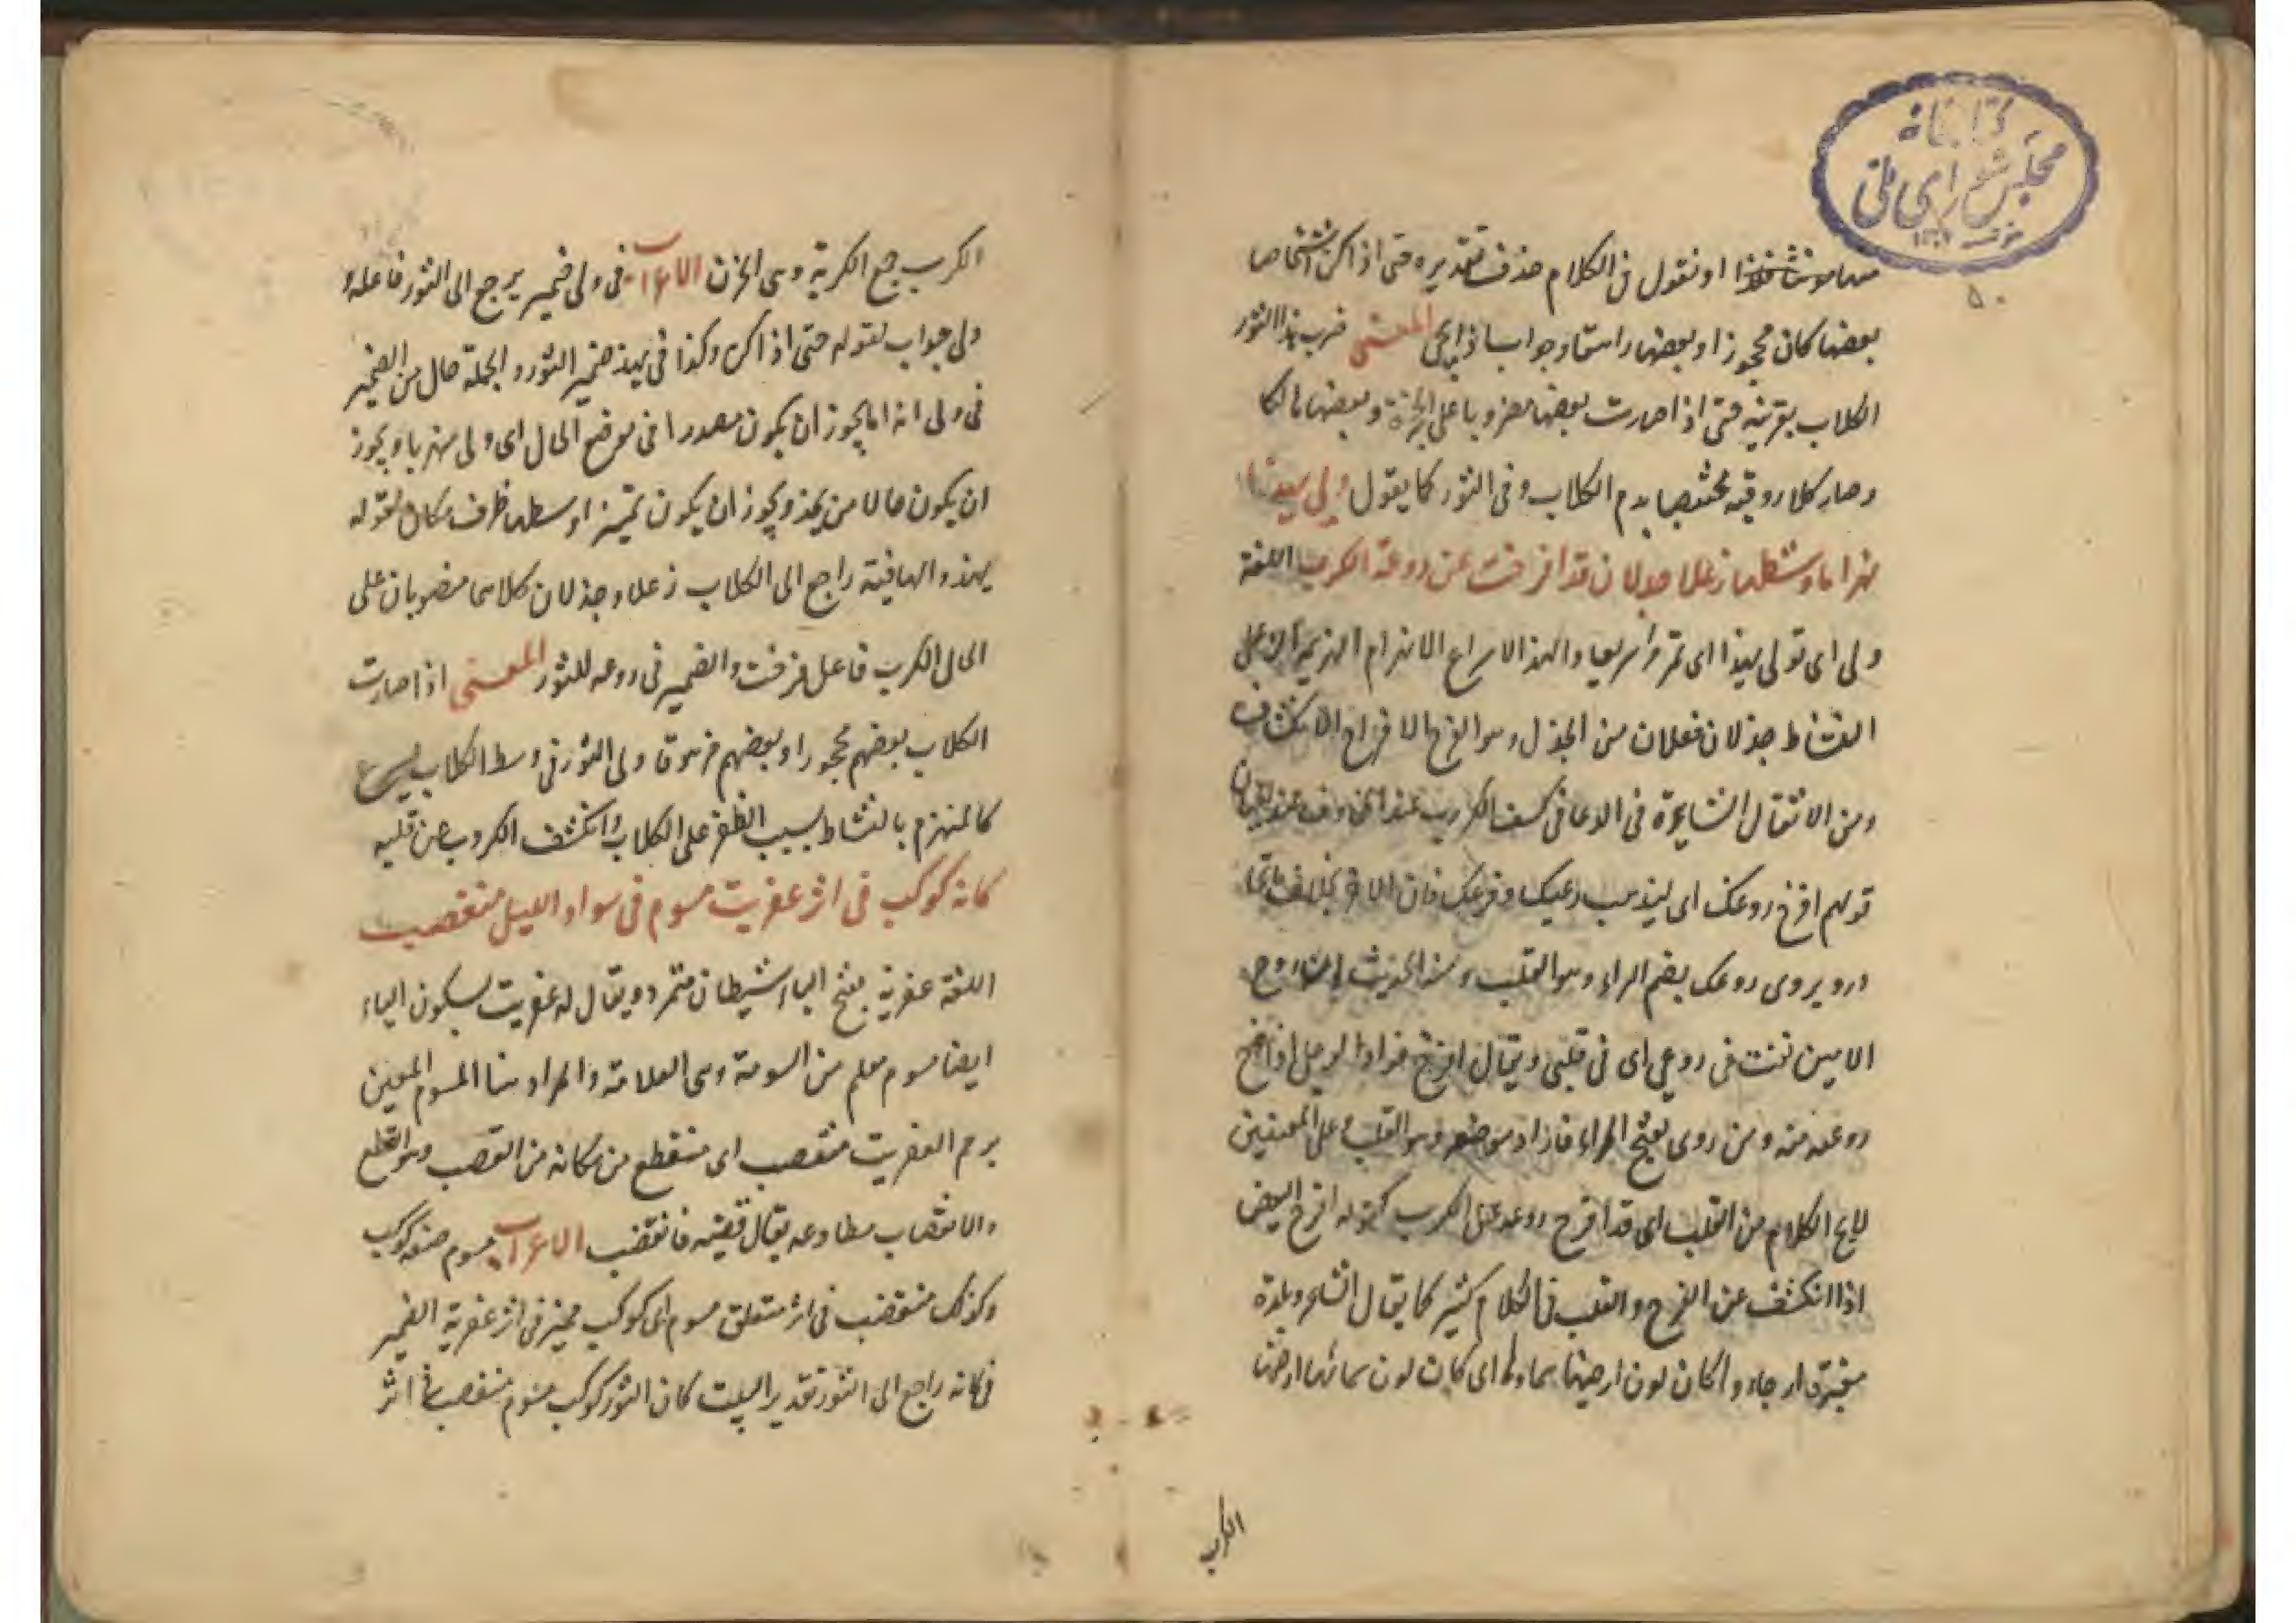 کتابخانه
مجلس شورای ملی
٥٠
او نقول فى الكلام حذف تقديره حتى اذا كن اشخاصا
بعضها كان محجوزا وبعضها راهقا وجواب اذا يجئ المعنى ضرب هذا الثور
الكلاب بقرنيه حتى اذا صارت بعضها مضروبا على الحجزة وبعضها هالكا
وصار كلا روقيه مختضبا بدم الكلاب وفى الثور كما يقول ولى يهذ
انهزاما وسطها زعلا جذلان قد افرخت عن روعه الكرب اللغة
ولى اى تولى يهذ اى تمر مرا سريعا والهذ الاسراع الانهزام الهزيمة الزعل
النشاط جذلان فعلان من الجذل وهو الفرح الافراخ الانكشاف
ومن الامثال السايرة فى الدعا فى كشف الكرب عند المخاوف عند الجبان
قولهم افرخ روعك اى ليذهب رعبك وفزعك فان الامر
ويروى روعك بضم الراء وهو القلب ومنه الحديث ان الروح
الامين نفث فى روعى اى فى قلبى ويقال افرخ فؤاد الرجل اذا خرج
روعه منه ومن روى بفتح الراء فاراد موضعه وهو القلب وعلى المعنيين
الكلام من القلب اى قد افرخ روعه عن الكرب كقوله افرخ البيض
اذا انكشف عن الفرخ والقلب فى الكلام كثير كما يقال الشاعر وبلدة
مغبرة ارجاؤه كان لون ارضها سماؤه اى كان لون سمائها ارضها
الكرب
الكرب جمع الكربة وهى الحزن الاعراب فى ولى ضمير يرجع الى الثور فاعله و
ولى جواب لقوله حتى اذا كن وكذا فى يهذ ضمير الثور والجملة حال من الضمير
فى ولى انهزاما يجوز ان يكون مصدرا فى موضع الحال اى ولى منهزما ويجوز
ان يكون حالا من يهذ ويجوز ان يكون تميزا وسطها ظرف مكان لقوله
يهذ والها فيه راجع الى الكلاب زعلا وجذلان كلاهما منصوبان على
الحال الكرب فاعل فرخت والضمير فى روعه للثور المعنى اذا صارت
الكلاب بعضهم محجورا وبعضهم مزهوقا ولى الثور فى وسط الكلاب يسرع
كالمنهزم بالنشاط بسبب الظفر على الكلاب وانكشف الكروب عن قلبه
كانه كوكب فى اثر عفريت مسوم فى سواد الليل منقضب
اللغة عفرية بفتح الياء شيطان متمرد ويقال له عفريت بسكون الياء
ايضا مسوم معلم من السومة وهى العلامة والمراد هنا المسوم المعين
برجم العفريت منقضب اى منقطع من مكانه من القضب وهو القطع
والانقضاب مطاوعه يقال قضبته فانقضب الاعراب مسوم صفة كوكب
وكذلك منقضب فى اثر متعلق مسوم اى كوكب مميز فى اثر عفرية الضمير
فى كانه راجع الى الثور تقدير البيت كان الثور كوكب مسوم منقضب فى اثر